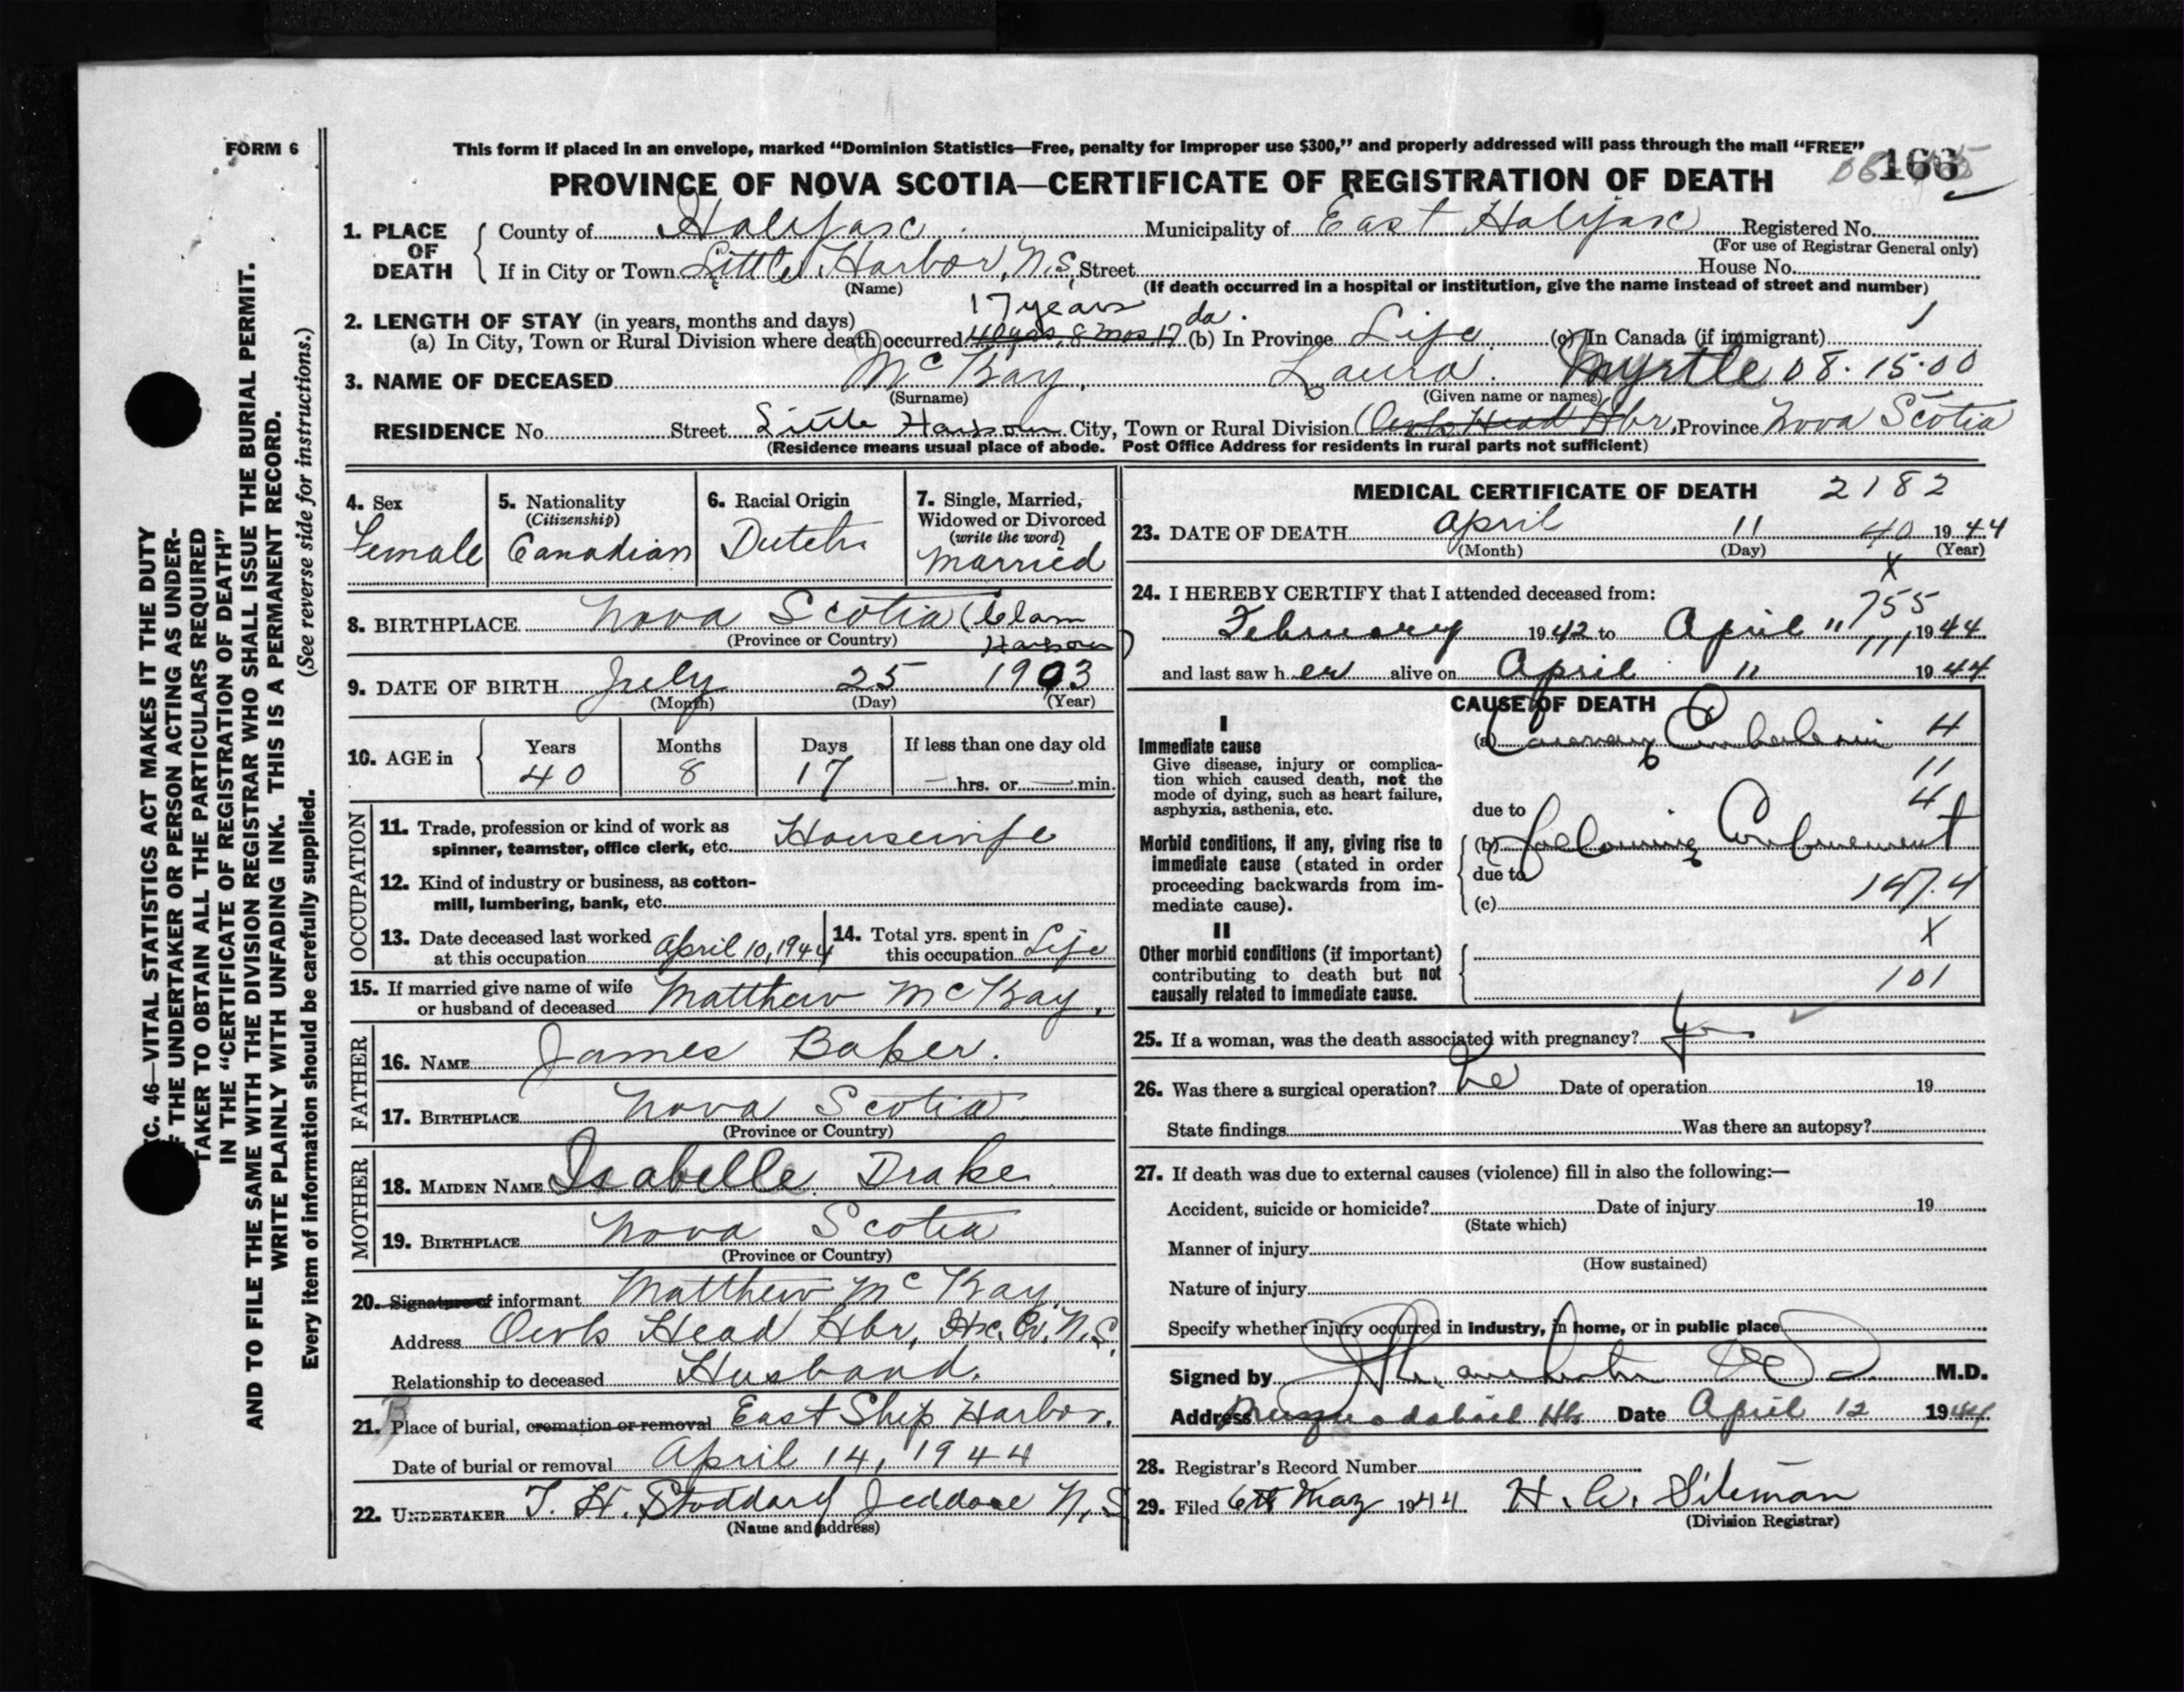 FORM 6
This form if placed in an envelope, marked “Dominion Statistics—Free, penalty for improper use $300,” and properly addressed will pass through the mail “FREE”
166
PROVINCE OF NOVA SCOTIA—CERTIFICATE OF REGISTRATION OF DEATH
1. PLACE OF DEATH
County of Halifax Municipality of East Halifax Registered No.
(For use of Registrar General only)
If in City or Town Little Harbor, N.S. Street House No.
(Name) (If death occurred in a hospital or institution, give the name instead of street and number)
17 years
2. LENGTH OF STAY (in years, months and days)
(a) In City, Town or Rural Division where death occurred 40 yrs, 8 mos 17 da. (b) In Province Life (c) In Canada (if immigrant)
3. NAME OF DECEASED McKay, Laura. Myrtle 08.15.00
(Surname) (Given name or names)
RESIDENCE No. Street Little Harbour City, Town or Rural Division (Owls Head Hbr, Province Nova Scotia
(Residence means usual place of abode. Post Office Address for residents in rural parts not sufficient)
4. Sex
Female
5. Nationality
(Citizenship)
Canadian
6. Racial Origin
Dutch
7. Single, Married,
Widowed or Divorced
(write the word)
Married
8. BIRTHPLACE Nova Scotia (Clam
Harbour)
(Province or Country)
9. DATE OF BIRTH July 25 1903
(Month) (Day) (Year)
10. AGE in
Years Months Days If less than one day old
40 8 17 — hrs. or — min.
OCCUPATION
11. Trade, profession or kind of work as
spinner, teamster, office clerk, etc. Housewife
12. Kind of industry or business, as cotton-
mill, lumbering, bank, etc.
13. Date deceased last worked
at this occupation April 10, 1944
14. Total yrs. spent in
this occupation Life
15. If married give name of wife
or husband of deceased Matthew McKay,
FATHER
16. NAME James Baker.
17. BIRTHPLACE Nova Scotia
(Province or Country)
MOTHER
18. MAIDEN NAME Isabelle Drake
19. BIRTHPLACE Nova Scotia
(Province or Country)
20. Signature of informant Matthew McKay
Address Owls Head Hbr, Hx. Co. N.S.
Relationship to deceased Husband.
21. Place of burial, cremation or removal East Ship Harbor.
Date of burial or removal April 14, 1944
22. UNDERTAKER T. H. Stoddard Jeddore N.S
(Name and address)
MEDICAL CERTIFICATE OF DEATH 2182
23. DATE OF DEATH April 11 40 1944
(Month) (Day) (Year)
X
24. I HEREBY CERTIFY that I attended deceased from:
755
February 1942 to April 11 1944
111
and last saw her alive on April 11 1944
CAUSE OF DEATH
I
Immediate cause
Give disease, injury or complica-
tion which caused death, not the
mode of dying, such as heart failure,
asphyxia, asthenia, etc.
(a) Coronary Embolism 4
11
4
due to
Morbid conditions, if any, giving rise to
immediate cause (stated in order
proceeding backwards from im-
mediate cause).
(b) following Confinement
due to
(c) 147.4
X
II
Other morbid conditions (if important)
contributing to death but not
causally related to immediate cause.
101
25. If a woman, was the death associated with pregnancy? Yes
26. Was there a surgical operation? No Date of operation 19
State findings Was there an autopsy?
27. If death was due to external causes (violence) fill in also the following:—
Accident, suicide or homicide? Date of injury 19
(State which)
Manner of injury
(How sustained)
Nature of injury
Specify whether injury occurred in industry, in home, or in public place
Signed by M.D.
Address Musquodoboit Hbr Date April 12 1944
28. Registrar's Record Number
29. Filed 6th May 1944 H. W. Siteman
(Division Registrar)
C. 46—VITAL STATISTICS ACT MAKES IT THE DUTY
F THE UNDERTAKER OR PERSON ACTING AS UNDER-
TAKER TO OBTAIN ALL THE PARTICULARS REQUIRED
IN THE “CERTIFICATE OF REGISTRATION OF DEATH”
AND TO FILE THE SAME WITH THE DIVISION REGISTRAR WHO SHALL ISSUE THE BURIAL PERMIT.
WRITE PLAINLY WITH UNFADING INK. THIS IS A PERMANENT RECORD.
Every item of information should be carefully supplied. (See reverse side for instructions.)